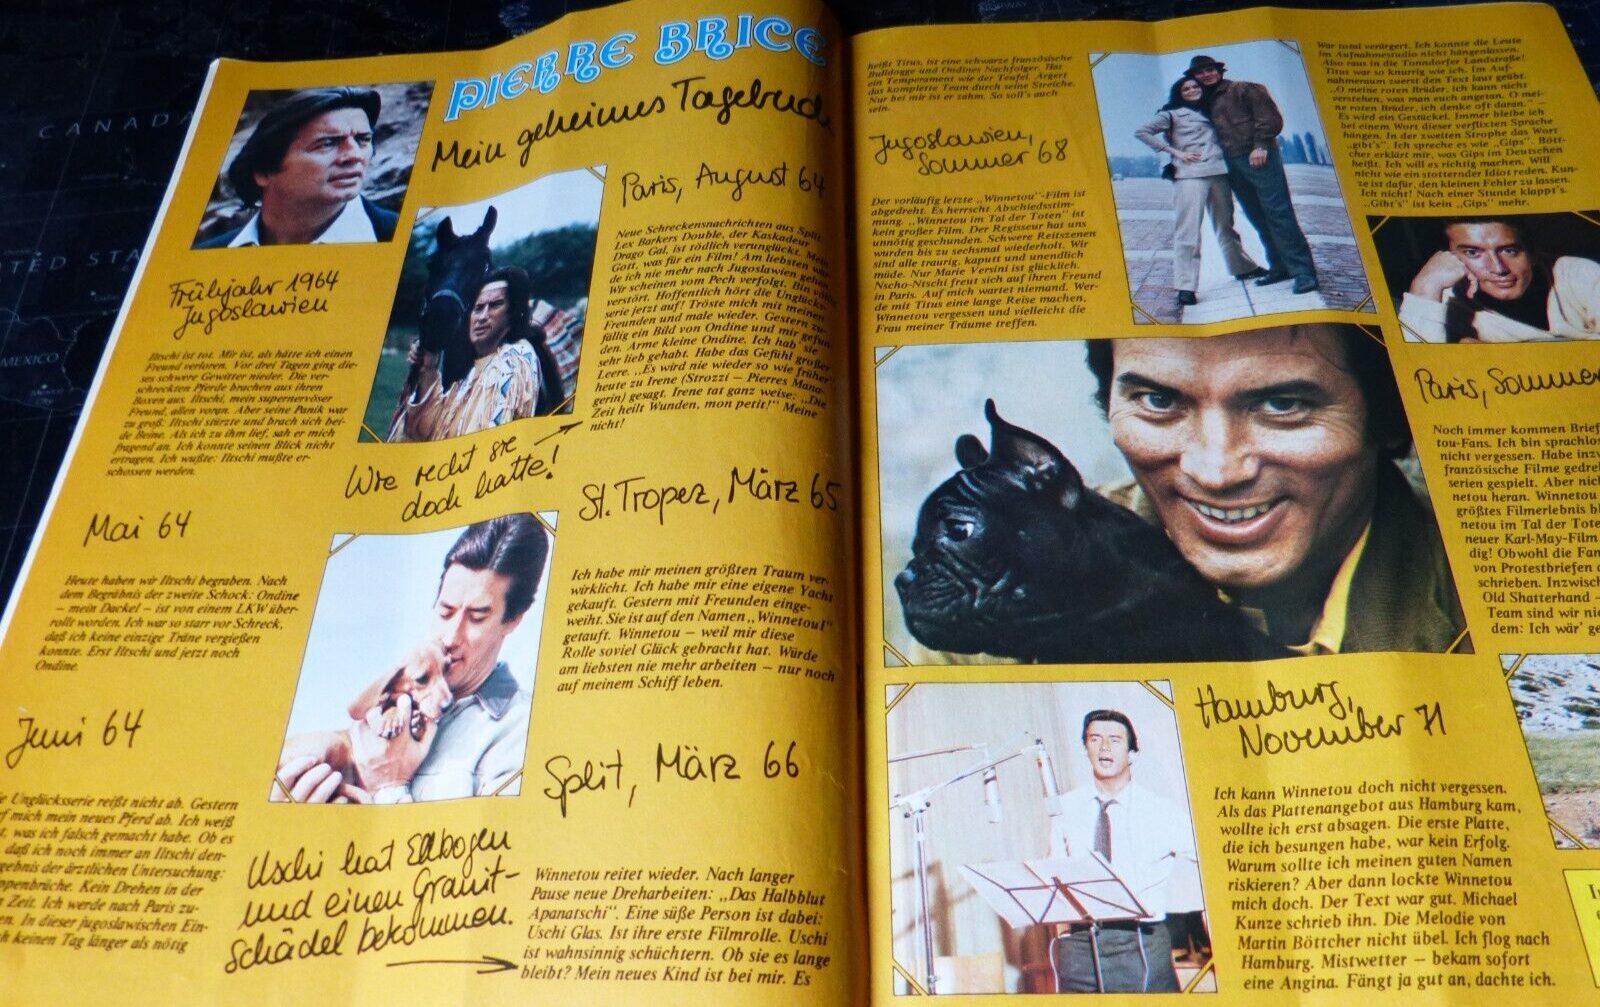 CANADA
MEXICO
PIERRE BRICE
Mein geheimes Tagebuch
Frühjahr 1964
Jugoslawien
Iltschi ist tot. Mir ist, als hätte ich einen
Freund verloren. Vor drei Tagen ging die-
ses schwere Gewitter nieder. Die ver-
schreckten Pferde brachen aus ihren
Boxen aus. Iltschi, mein supernervöser
Freund, allen voran. Aber seine Panik war
zu groß. Iltschi stürzte und brach sich bei-
de Beine. Als ich zu ihm lief, sah er mich
fragend an. Ich konnte seinen Blick nicht
ertragen. Ich wußte: Iltschi mußte er-
schossen werden.
Mai 64
Heute haben wir Iltschi begraben. Nach
dem Begräbnis der zweite Schock: Ondine
– mein Dackel – ist von einem LKW über-
rollt worden. Ich war so starr vor Schreck,
daß ich keine einzige Träne vergießen
konnte. Erst Iltschi und jetzt noch
Ondine.
Juni 64
Unglücksserie reißt nicht ab. Gestern
mich mein neues Pferd ab. Ich weiß
was ich falsch gemacht habe. Ob es
daß ich noch immer an Iltschi den-
der ärztlichen Untersuchung:
Kein Drehen in der
Zeit. Ich werde nach Paris zu-
In dieser jugoslawischen Ein-
keinen Tag länger als nötig
Wie recht sie
doch hatte!
Uschi hat Ellbogen
und einen Granit-
Schädel bekommen.
Paris, August 64
Neue Schreckensnachrichten aus Split.
Lex Barkers Double, der Kaskadeur
Drago Gal, ist tödlich verunglückt. Mein
Gott, was für ein Film! Am liebsten
de ich nie mehr nach Jugoslawien gehen.
Wir scheinen vom Pech verfolgt. Bin
verstört. Hoffentlich hört die Unglücks-
serie jetzt auf! Tröste mich mit meinen
Freunden und male wieder. Gestern zu-
fällig ein Bild von Ondine und mir gefun-
den. Arme kleine Ondine. Ich hab' sie
sehr lieb gehabt. Habe das Gefühl großer
Leere. „Es wird nie wieder so wie früher"
heute zu Irene (Strozzi – Pierres Mana-
gerin) gesagt. Irene tat ganz weise: „Die
Zeit heilt Wunden, mon petit!" Meine
nicht!
St. Tropez, März 65
Ich habe mir meinen größten Traum ver-
wirklicht. Ich habe mir eine eigene Yacht
gekauft. Gestern mit Freunden einge-
weiht. Sie ist auf den Namen „Winnetou I"
getauft. Winnetou – weil mir diese
Rolle soviel Glück gebracht hat. Würde
am liebsten nie mehr arbeiten – nur noch
auf meinem Schiff leben.
Split, März 66
Winnetou reitet wieder. Nach langer
Pause neue Dreharbeiten: „Das Halbblut
Apanatschi". Eine süße Person ist dabei:
Uschi Glas. Ist ihre erste Filmrolle. Uschi
ist wahnsinnig schüchtern. Ob sie es lange
bleibt? Mein neues Kind ist bei mir. Es
heißt Titus, ist eine schwarze französische
Bulldogge und Ondines Nachfolger. Hat
ein Temperament wie der Teufel. Ärgert
das komplette Team durch seine Streiche.
Nur bei mir ist er zahm. So soll's auch
sein.
Jugoslawien,
Sommer 68
Der vorläufig letzte „Winnetou"-Film ist
abgedreht. Es herrscht Abschiedsstim-
mung. „Winnetou im Tal der Toten" ist
kein großer Film. Der Regisseur hat uns
unnötig geschunden. Schwere Reitszenen
wurden bis zu sechsmal wiederholt. Wir
sind alle traurig, kaputt und unendlich
müde. Nur Marie Versini ist glücklich.
Nscho-Ntschi freut sich auf ihren Freund
in Paris. Auf mich wartet niemand. Wer-
de mit Titus eine lange Reise machen,
Winnetou vergessen und vielleicht die
Frau meiner Träume treffen.
Hamburg,
November 71
Ich kann Winnetou doch nicht vergessen.
Als das Plattenangebot aus Hamburg kam,
wollte ich erst absagen. Die erste Platte,
die ich besungen habe, war kein Erfolg.
Warum sollte ich meinen guten Namen
riskieren? Aber dann lockte Winnetou
mich doch. Der Text war gut. Michael
Kunze schrieb ihn. Die Melodie von
Martin Böttcher nicht übel. Ich flog nach
Hamburg. Mistwetter – bekam sofort
eine Angina. Fängt ja gut an, dachte ich.
War total verärgert. Ich konnte die Leute
im Aufnahmestudio nicht hängenlassen.
Also raus in die Tonndorfer Landstraße!
Titus war so knurrig wie ich. Im Auf-
nahmeraum zuerst den Text laut geübt.
„O meine roten Brüder, ich kann nicht
verstehen, was man euch angetan. O mei-
ne roten Brüder, ich denke oft daran." –
Es wird ein Gestückel. Immer bleibe ich
bei einem Wort dieser verflixten Sprache
hängen. In der zweiten Strophe das Wort
„gibt's". Ich spreche es wie „Gips". Bött-
cher erklärt mir, was Gips im Deutschen
heißt. Ich will es richtig machen. Will
nicht wie ein stotternder Idiot reden. Kun-
ze ist dafür, den kleinen Fehler zu lassen.
Ich nicht! Nach einer Stunde klappt's.
„Gibt's" ist kein „Gips" mehr.
Paris, Sommer
Noch immer kommen Brief
tou-Fans. Ich bin sprachlos
nicht vergessen. Habe inzw
französische Filme gedre
serien gespielt. Aber nich
netou heran. Winnetou
größtes Filmerlebnis bl
netou im Tal der Tote
neuer Karl-May-Film
dig! Obwohl die Fan
von Protestbriefen
schrieben. Inzwisch
Old Shatterhand –
Team sind wir nie
dem: Ich wär' ge